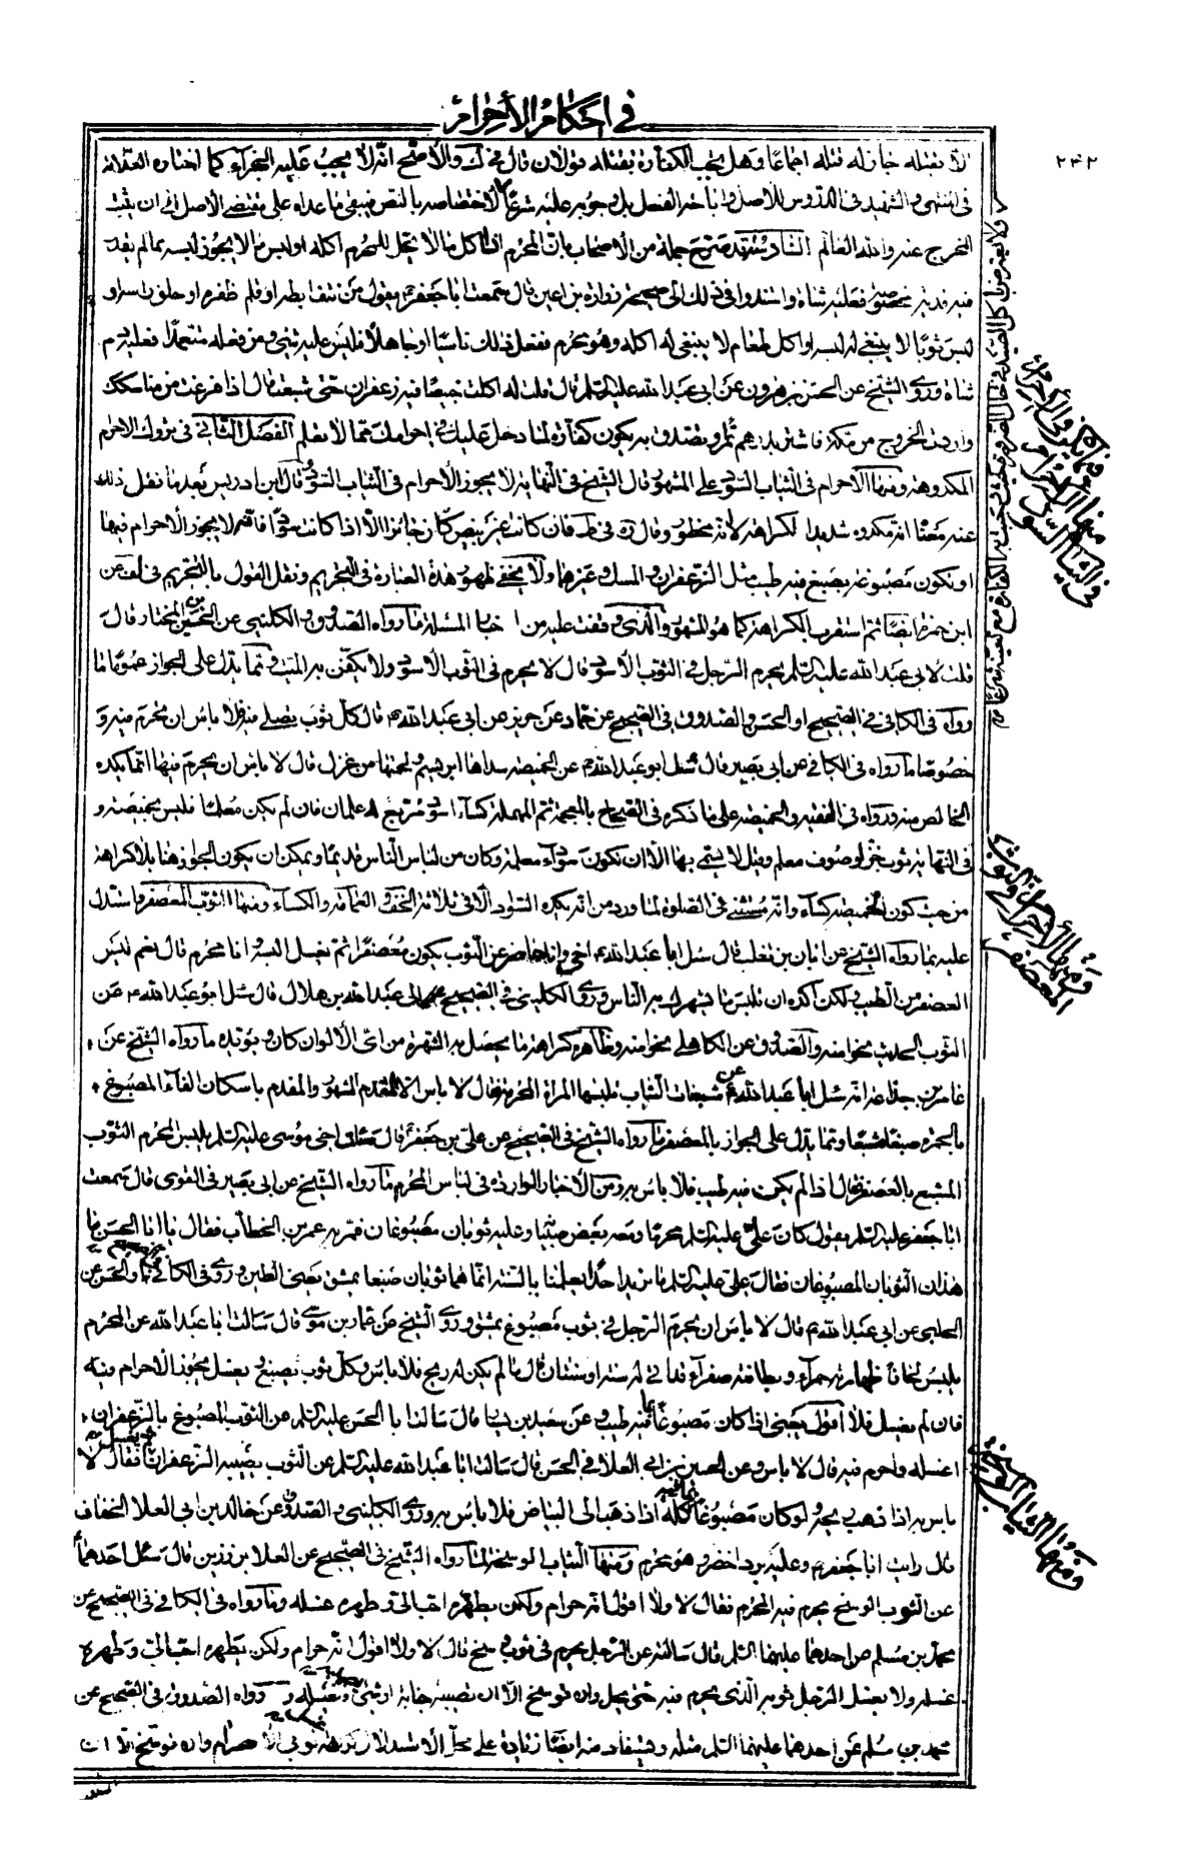 في احكام الأحرام
٢٤٢
لا بقتله جاز له قتله اجماعا وهل يجب الكفارة بقتله قولان قال والأصح انه لا يجب عليه الجزاء كما اختاره العلامة
في المنتهى والشهيد في الدروس للأصل وانا خر الفصل بل وجوبه عليه شرعا لاختصاصه بالنص فيبقى ما عداه على مقتضى الأصل الى ان يثبت
المخرج عنه والله العالم السادس قد صرح جملة من الأصحاب بان المحرم اذا اكل ما لا يحل للمحرم اكله او لبس ما لا يجوز لبسه مما لم يقدر
فيه فدية مخصوصة فعليه شاة واستندوا في ذلك الى صحيحة زرارة بن اعين قال سمعت ابا جعفر يقول من نتف ابطه او قلم ظفره او حلق راسه او
لبس ثوبا لا ينبغي له لبسه او اكل طعام لا ينبغي له اكله وهو محرم ففعل ذلك ناسيا او جاهلا فليس عليه شيء ومن فعله متعمدا فعليه دم
شاة وروى الشيخ عن الحسن بن هرون عن ابي عبد الله عليه السلم قال قلت له اكلت خبيصا فيه زعفران حتى شبعت قال اذا فرغت من مناسكك
واردت الخروج من مكة فاشتر بدرهم تمرا وتصدق به يكون كفارة لما دخل عليك في احرامك مما لا تعلم الفصل الثاني في تروك الاحرام
المكروهة ومنها الاحرام في الثياب السود على المشهور قال الشيخ في النهاية لا يجوز الأحرام في الثياب السود قال ابن ادريس بعد ما نقل ذلك
عنه معنا انه مكروه شديد الكراهة لا انه محظور وقال في ط فان كانت غير بيض كان جائزا الا اذا كانت سودا فانه لا يجوز الاحرام فيها
او تكون مصبوغة بصبغ فيه طيب مثل الزعفران والمسك وغيرهما ولا يخفى ظهور هذه العبارة في التحريم ونقل القول بالتحريم في لف عن
ابن حمزة ايضا ثم استقرب الكراهة كما هو المشهور والذي وقفت عليه من اخبار المسئلة ما رواه الصدوق والكليني عن الحسين بن المختار قال
قلت لابي عبد الله عليه السلم يحرم الرجل في الثوب الأسود قال لا يحرم في الثوب الأسود ولا يكفن به الميت ومما يدل على الجواز عموما ما
رواه في الكافي في الصحيح او الحسن والصدوق في الصحيح عن حماد عن حريز عن ابي عبد الله قال كل ثوب يصلى فيه فلا باس ان تحرم فيه و
خصوصا ما رواه في الكافي عن ابي بصير قال سئل ابو عبد الله عن الخميصة سداها ابريسم ولحمتها من غزل قال لا باس ان يحرم فيها انما يكره
الخالص منه ورواه في الفقيه والخميصة على ما ذكره في الصحاح بالمعجمة ثم المهملة كساء اسود مربع له علمان فان لم يكن معلما فليس بخميصة و
في النهاية ثوب خز او صوف معلم وقيل لا يسمى بها الا ان تكون سوداء معلمة وكان من لباس الناس قديما ويمكن ان يكون الجواز هنا بلا كراهة
من حيث كون الخميصة كساء وانه مستثنى في الصلوة لما ورد من انه يكره السواد الا في ثلاثة الخف والعمامة والكساء ومنها الثوب المعصفر واستدل
عليه بما رواه الشيخ عن ابان بن تغلب قال سئل ابا عبد الله اخي وانا حاضر عن الثوب يكون معصفرا ثم يغسل البسه وانا محرم قال نعم ليس
العصفر من الطيب ولكن اكره ان تلبس ما يشهرك به الناس وروى الكليني في الصحيح الى عبد الله بن هلال قال سئل ابو عبد الله عن
الثوب الحديث نحوا منه والصدوق عن الكاهلي نحوا منه وظاهره كراهة ما يحصل به الشهرة من اي الألوان كان ويؤيده ما رواه الشيخ عن
عامر بن جذاعة انه سئل ابا عبد الله عن مشبعات الثياب تلبسها المراة المحرمة فقال لا باس الا المقدم المشهور والمقدم باسكان الفاء المصبوغ
بالحمرة صبغا مشبعا ومما يدل على الجواز بالمعصفر ما رواه الشيخ في الصحيح عن علي بن جعفر قال سالت اخي موسى عليه السلم يلبس المحرم الثوب
المشبع بالعصفر فقال اذا لم يكن فيه طيب فلا باس به ومن الأخبار الواردة في لباس المحرم ما رواه الشيخ عن ابي بصير في القوي قال سمعت
ابا جعفر عليه السلم يقول كان علي عليه السلم محرما ومعه بعض صبيانه وعليه ثوبان مصبوغان فمر به عمر بن الخطاب فقال يا ابا الحسن ما
هذان الثوبان المصبوغان فقال علي عليه السلم ما نريد احدا يعلمنا بالسنة انما هما ثوبان صبغا بمشق يعني الطين وروى في الكافي والحسن عن
الحلبي عن ابي عبد الله قال لا باس ان يحرم الرجل في ثوب مصبوغ بمشق وروى الشيخ عن عمار بن موسى قال سالت ابا عبد الله عن المحرم
يلبس لحافا ظهارته حمراء وبطانته صفراء قد اتى له سنة او سنتان قال ما لم يكن له ريح فلا باس وكل ثوب يصبغ ويغسل يجوز الاحرام فيه
فان لم يغسل فلا اقول يعني اذا كان مصبوغا بما فيه طيب وعن سعيد بن يسار قال سالت ابا الحسن عليه السلم عن الثوب المصبوغ بالزعفران
اغسله واحرم فيه قال لا باس وعن الحسين بن ابي العلا في الحسن قال سالت ابا عبد الله عليه السلم عن الثوب يصيبه الزعفران ثم يغسل فقال لا
باس به اذا ذهب ريحه ولو كان مصبوغا كله اذا ذهب الى البياض فلا باس به وروى الكليني والصدوق عن خالد بن ابي العلا الخفاف
قال رايت ابا جعفر وعليه برد اخضر وهو محرم ومنها الثياب الوسخة لما رواه الشيخ في الصحيح عن العلا بن رزين قال سئل احدهما
عن الثوب الوسخ يحرم فيه المحرم فقال لا ولا اقول انه حرام ولكن يطهره احب الي وطهره غسله وما رواه في الكافي في الصحيح عن
محمد بن مسلم عن احدهما عليهما السلم قال سالته عن الرجل يحرم في ثوب وسخ قال لا ولا اقول انه حرام ولكن يطهره احب الي وطهره
غسله ولا يغسل الرجل ثوبه الذي يحرم فيه حتى يحل وان توسخ الا ان تصيبه جنابة او شيء فيغسله ورواه الصدوق في الصحيح عن
محمد بن مسلم عن احدهما عليهما السلم مثله ويستفاد منه ايضا زيادة على محل الاستدلال كراهة ثوبي الأحرام وان توسخ الا ان
فيما يكره في الأحرام
منها الاحرام
في الثياب السود
ومنها الأحرام في الثوب
المعصفر
ومنها الثياب الوسخة